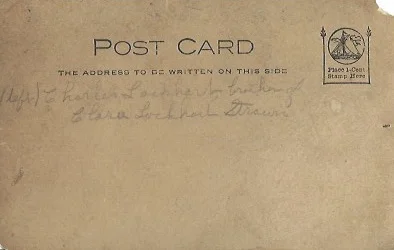 POST CARD
THE ADDRESS TO BE WRITTEN ON THIS SIDE
Place 1-Cent
Stamp Here
(left) Charles Lockhart brother of
Clara Lockhart Strawn